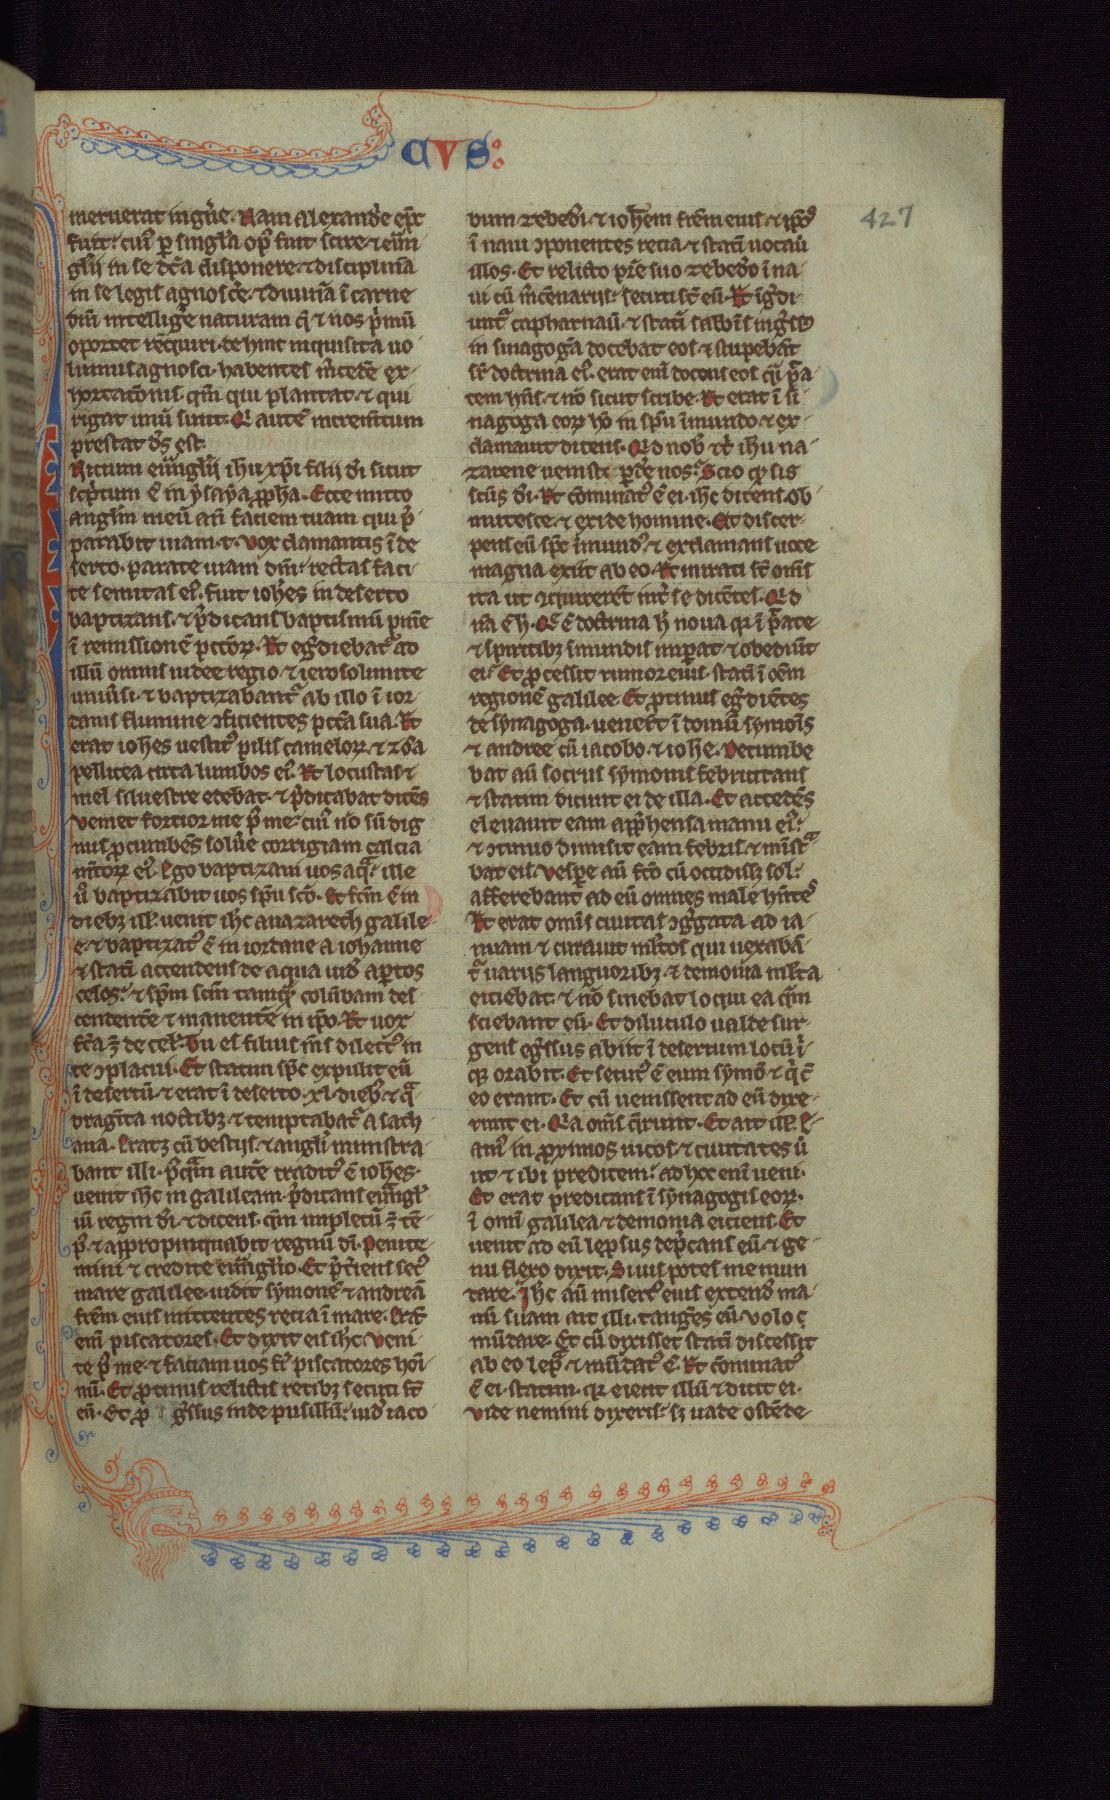 CVS:
427
meruerat ingr̄e. Nam alexandr̄e epc̄
fuit: cui᷒ ꝑ singl̄a op᷒ fuit scire ⁊ eūn
glii in se dc̄a disponere ⁊ disciplinā
in se legis agnosc̄e ⁊ diuinā ī carne
dn̄i intelliḡe naturam q̄ ⁊ nos p̄mū
oportet req̄uiri. dehinc inquisita uo
lumus agnosci. habentes m̄cedē ex
hortac̄onis. qm̄ qui plantat ⁊ qui
rigat unū sunt. Q̄ autē incrementum
prestat ds̄ est.
Nicium euuglii ihu xp̄i filii di sicut
scptum ē in ysaya ꝓpha. Ecce mitto
anglm meū an̄ faciem tuam qui p̄
parabit uiam. t. Vox clamantis ī de
serto. parate uiam dn̄i. rectas faci
te semitas ei᷒. fuit ioh̄es in deserto
baptizans. ⁊ p̄dicans baptismū pnīe
ī remissionē pctōꝝ. Et eḡdiebat᷑ ad
illū omnis iudee regio ⁊ ierosolimite
uniūsi. ⁊ baptizabant᷑ ab illo ī ior
danis flumine ↄfitentes pctā sua. Et
erat ioh̄es uestit᷒ pilis cameloꝝ. ⁊ zōa
pellicea circa lumbos ei᷒. Et locustas ⁊
mel siluestre edebat. ⁊ p̄dicabat dicēs
Veniet fortior me p᷒ me: cui᷒ nō sū dig
nus ꝓcumbēs solūe corrigiam calcia
m̄toꝝ ei᷒. Ego baptizaui uos aq̄: ille
ū baptizabit uos spū scō. Et fcm̄ ē in
dieb; ill̄. uenit ihc a nazareth galile
e. ⁊ baptizat᷒ ē in iordane a iohanne
⁊ statī ascendens de aqua uid̄ aptos
celos: ⁊ spm̄ scm̄ tamq̄ colūbam des
cendentē ⁊ manentē in ipo. Et uox
fc̄a ꝫ de cel̄. Tu es filius ms̄ dilect᷒ in
te ↄplacui. Et statim spc̄ expulit eū
ī desertū. ⁊ erat ī deserto. xl. dieb᷒ ⁊ q̄
draginta noctib; ⁊ temptabat᷑ a sath
ana. Eratꝫ cū bestiis. ⁊ angli ministra
bant illi. p᷒q̄m autē tradit᷒ ē ioh̄es.
uenit ihc in galileam. p̄dicans euugl̄
iū regni di. ⁊ dicens. qm̄ impletū ꝫ tē
p᷒. ⁊ appropinquabit regnū di. Penite
mini ⁊ credite euuglio. Et p̄tiens sec᷒
mare galilee. uidit symonē ⁊ andreā
frēm eius mittentes recia ī mare. Erāt
em̄ piscatores. Et dixit eis ihc. Veni
te p᷒ me ⁊ faciam uos fr̄i piscatores hoī
nū. Et ꝓtinus relictis retib; secuti st̄
eū. Et ꝓ gr̄ssus inde pusillū: uid̄ iaco
bum zebedi. ⁊ ioh̄em frēm eius. ⁊ ipōs
ī naui ↄponentes recia ⁊ statī uocauī
illos. Et relicto pr̄e suo zebedo ī na
ui cū m̄cenariis: secuti st̄ eū. Et īḡdi
unt᷑ capharnaū. ⁊ statī sabb̄is inḡss᷒
in sinagoḡa docebat eos. ⁊ stupebāt
sr̄ doctrina ei᷒. erat em̄ docens eos q̄i p̄a
tem hn̄s. ⁊ nō sicut scribe. Et erat ī si
nagoga eoꝝ hō in spū īmundo ⁊ ex
clamauit dicens. Q̄d nob᷒ ⁊ t᷒ ihu na
zarene uenisti pd̄e nos: Scio qꝫ sis
scūs di. Et cōminat᷒ ē ei. ihc dicens. Ob
mutesce. ⁊ exi de homine. Et discer
pens eū spc̄ īmund᷒. ⁊ exclamans uoce
magna exiit ab eo. Et mirati st̄ om̄s
ita ut ↄquirerēt int̄ se dicētes. Q̄ d
nā ē h̄. Q̄ ē doctrina h̄ noua qr ī p̄ate
⁊ spiritib; īmundis impat ⁊ obediūt
ei. Et ꝓcessit rumor eius. statī ī om̄ē
regionē galilee. Et ꝓtinus eḡdiētes
de synagoga. uener̄t ī domū symōis
⁊ andree cū iacobo ⁊ iohe. Decumbe
bat aū socrus symonis febricitans
⁊ statim dicunt ei de illa. Et accedēs
eleuauit eam app̄hensa manu ei᷒.
⁊ ↄtinuo dimisit eam febris. ⁊ mīst᷑
bat eis. Vespe aū fcō cū occidisꝫ sol:
afferebant ad eū omnes male hn̄tes
Et erat om̄is ciuitas ↄḡgata ad ia
nuam ⁊ curauit ml̄tos qui uexabā
t᷑ uariis languorib; ⁊ demonia ml̄ta
eiciebat. ⁊ nō sinebat loqui ea q̄m
sciebant eū. Et diluculo ualde sur
gens eḡssus abiit ī desertum locū ī
qꝫ orabit. Et secut᷒ ē eum symō ⁊ q̄ c̄
eo erant. Et cū uenissent ad eū dixe
runt ei. Q̄a om̄s q̄runt. Et ait ill̄. E
am᷒ in proximos uicos. ⁊ ciuitates ū
ut ⁊ ibi predicem: ad hoc eni ueni.
Et erat predicans ī synagogis eoꝝ.
ī omī galilea ⁊ demonia eiciens. Et
uenit ad eū leprsus dep̄cans eū. ⁊ ge
nu flexo dixit. Si uis potes me mun
dare. Ihc aū misert᷒ eius extend̄ ma
nū suam ait illi. tangēs eū. Volo ⁊
mūdare. Et cū dixisset statī discessit
ab eo lep̄ ⁊ mūdat᷒ ē. Et cōminat᷒
ē ei. statim qꝫ eiecit illū ⁊ dicit ei.
Vide nemini dixeris: sꝫ uade ostēde